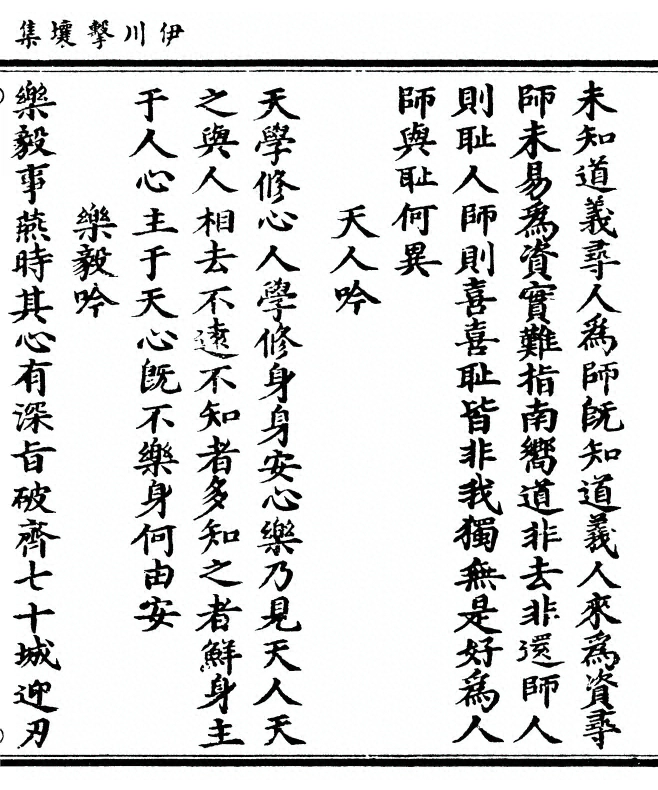 伊川擊壤集
未知道義尋人爲師既知道義人來爲資尋
師未易爲資實難指南嚮道非去非還師人
則耻人師則喜喜耻皆非我獨無是好爲人
師與耻何異
天人吟
天學修心人學修身身安心樂乃見天人天
之與人相去不遠不知者多知之者鮮身主
于人心主于天心既不樂身何由安
樂毅吟
樂毅事燕時其心有深旨破齊七十城迎刃